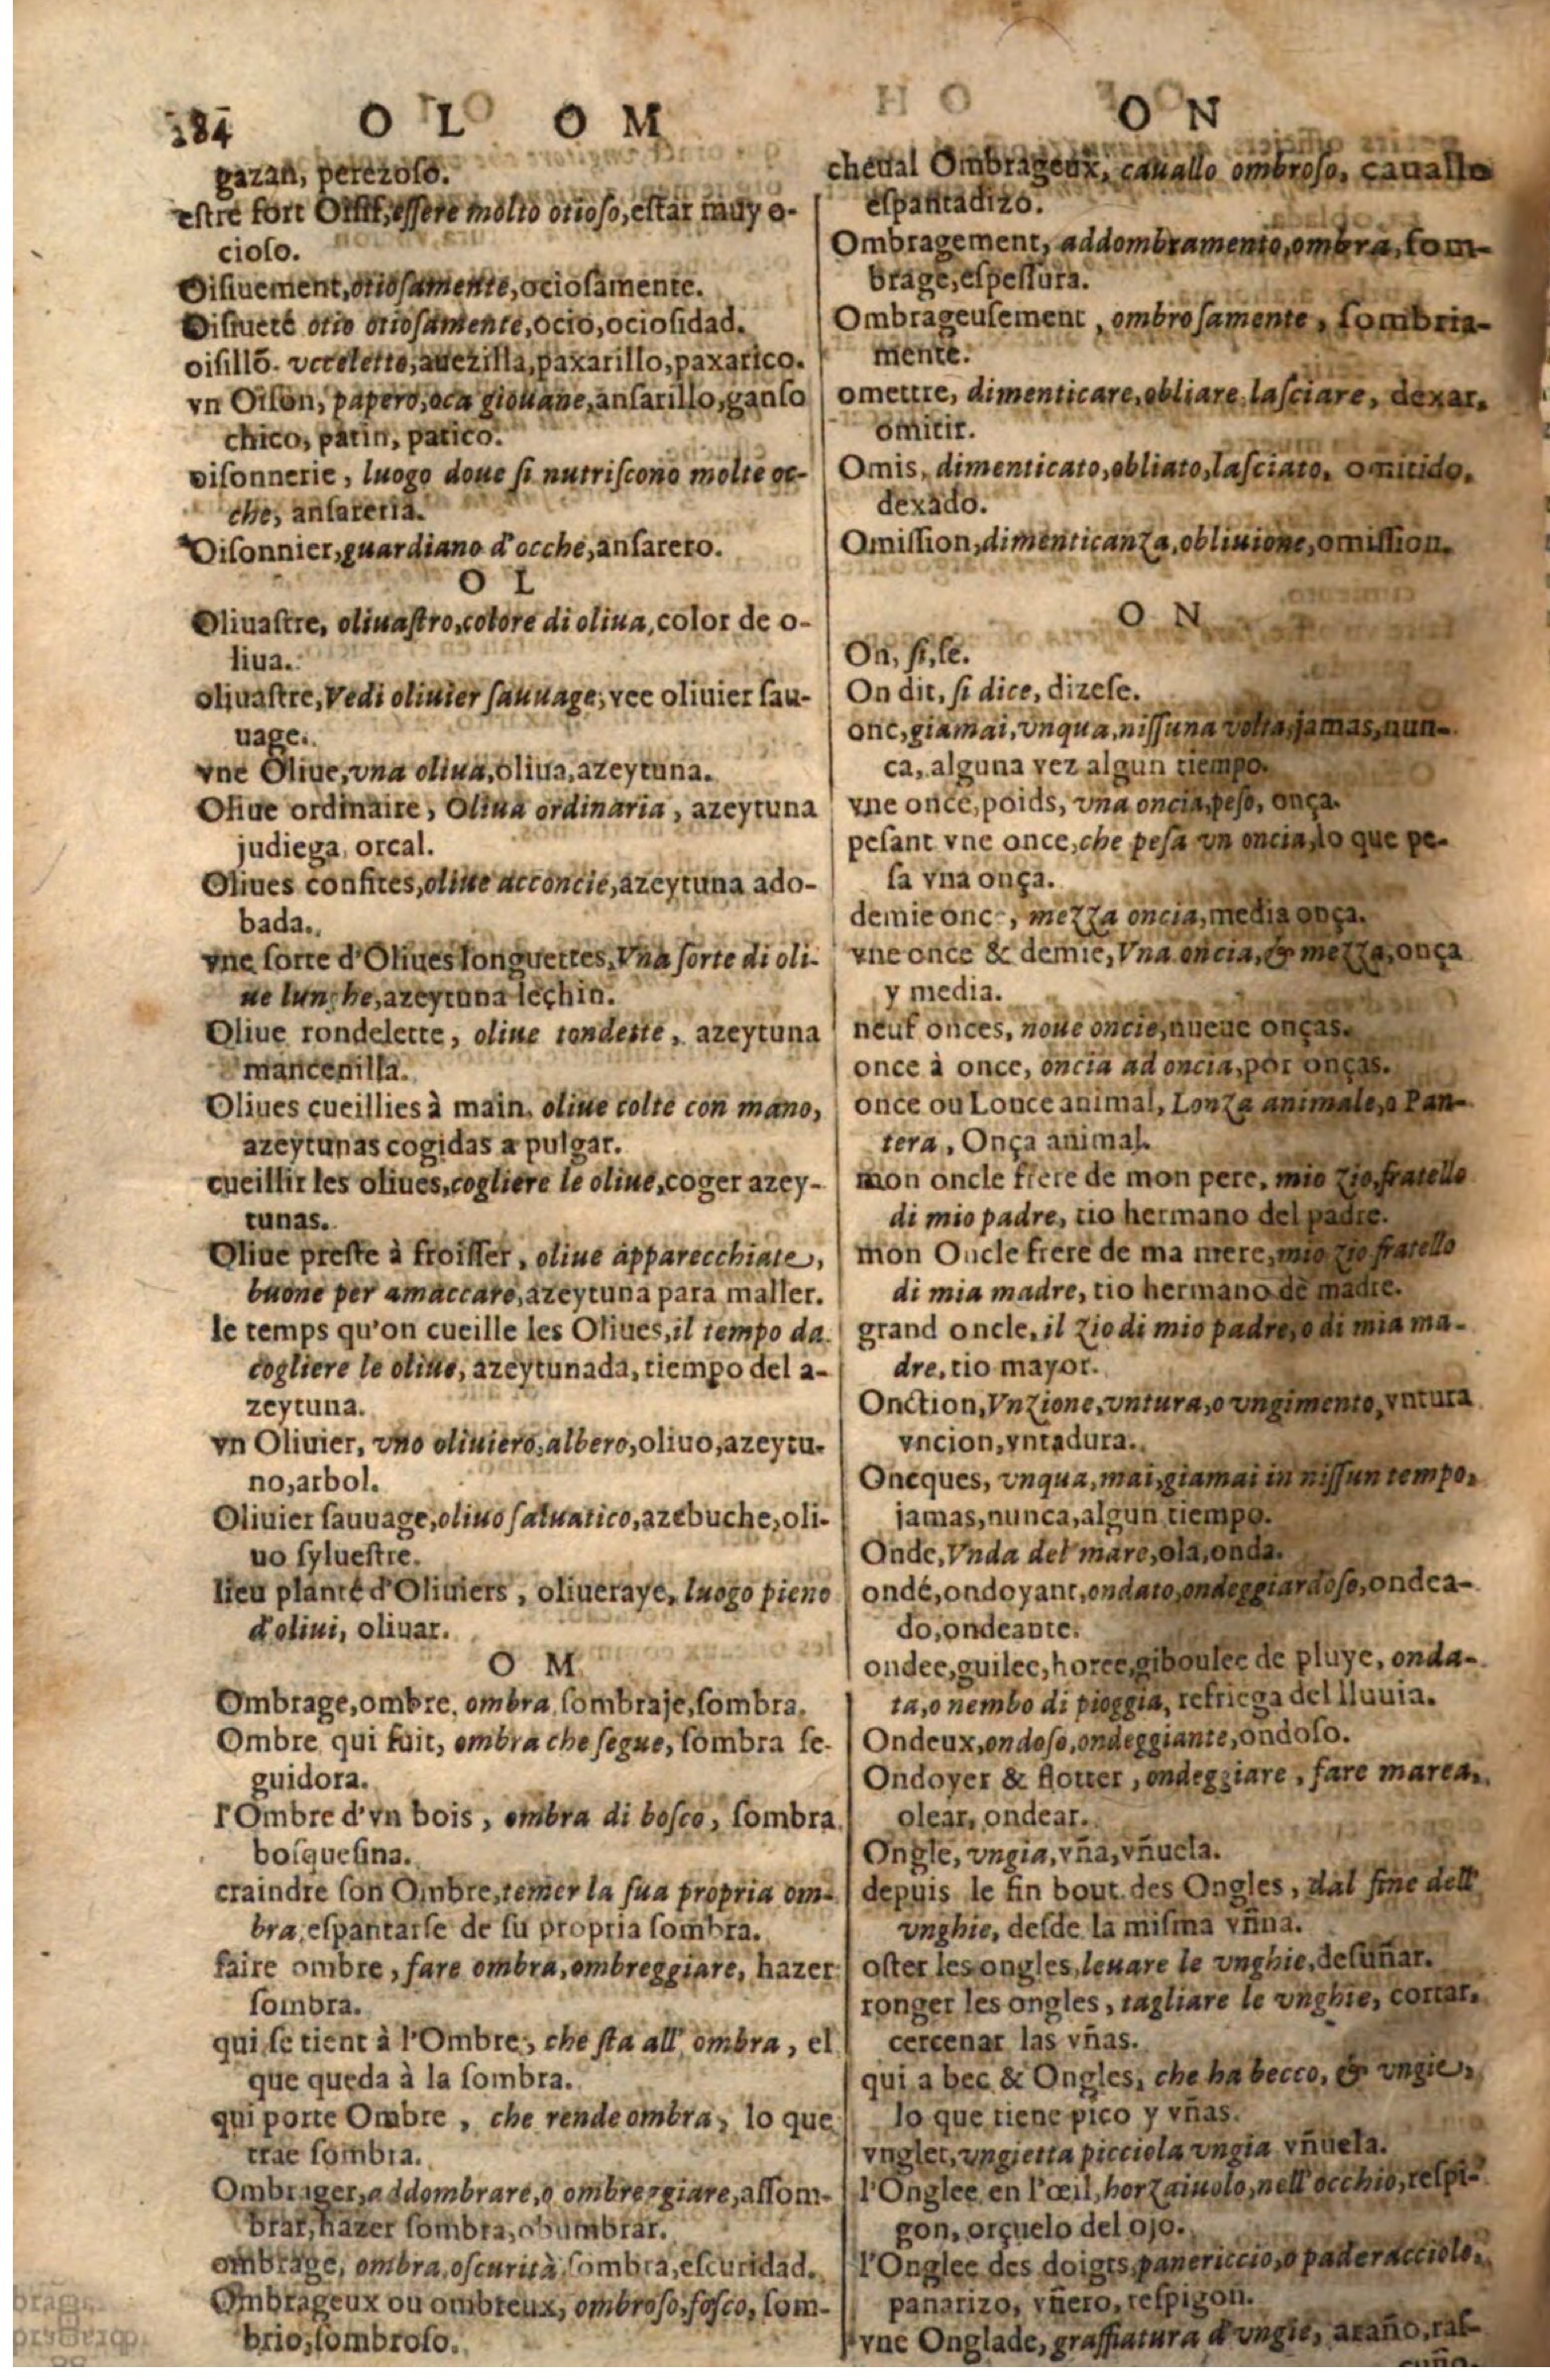 284 OL OM ON
gazan, perezoso.
estre fort Oisif, essere molto otioso, estar muy o-
cioso.
Oisiuement, otiosamente, ociosamente.
Oisiueté otio otiosamente, ocio, ociosidad.
oisillõ. vcceletto, auezilla, paxarillo, paxarico.
vn Oison, papero, oca giouane, ansarillo, ganso
chico, patin, patico.
oisonnerie, luogo doue si nutriscono molte oc-
che, ansareria.
Oisonnier, guardiano d'ocche, ansarero.
O L
Oliuastre, oliuastro, colore di oliua, color de o-
liua.
oliuastre, Vedi oliuier sauuage, vee oliuier sau-
uage.
vne Oliue, vna oliua, oliua, azeytuna.
Oliue ordinaire, Oliua ordinaria, azeytuna
judiega, orcal.
Oliues confites, oliue acconcie, azeytuna ado-
bada.
vne sorte d'Oliues longuettes, Vna sorte di oli-
ue lunghe, azeytuna lechin.
Oliue rondelette, oliue tondette, azeytuna
mancenilla.
Oliues cueillies à main, oliue colte con mano,
azeytunas cogidas a pulgar.
cueillir les oliues, cogliere le oliue, coger azey-
tunas.
Oliue preste à froisser, oliue apparecchiate,
buone per amaccare, azeytuna para maller.
le temps qu'on cueille les Oliues, il tempo da
cogliere le oliue, azeytunada, tiempo del a-
zeytuna.
vn Oliuier, vno oliuiero, albero, oliuo, azeytu-
no, arbol.
Oliuier sauuage, oliuo saluatico, azebuche, oli-
uo syluestre.
lieu planté d'Oliuiers, oliueraye, luogo pieno
d'oliui, oliuar.
O M
Ombrage, ombre, ombra, sombraje, sombra.
Ombre qui suit, ombra che segue, sombra se-
guidora.
l'Ombre d'vn bois, ombra di bosco, sombra
bosquesina.
craindre son Ombre, temer la sua propria om-
bra, espantarse de su propria sombra.
faire ombre, fare ombra, ombreggiare, hazer
sombra.
qui se tient à l'Ombre, che sta all' ombra, el
que queda à la sombra.
qui porte Ombre, che rende ombra, lo que
trae sombra.
Ombrager, addombrare, o ombreggiare, assom-
brar, hazer sombra, obumbrar.
ombrage, ombra, oscurità, sombra, escuridad.
Ombrageux ou ombreux, ombroso, fosco, som-
brio, sombroso.
cheual Ombrageux, cauallo ombroso, cauallo
espantadizo.
Ombragement, addombramento, ombra, som-
brage, espessura.
Ombrageusement, ombrosamente, sombria-
mente.
omettre, dimenticare, obliare, lasciare, dexar,
omitir.
Omis, dimenticato, obliato, lasciato, omitido,
dexado.
Omission, dimenticanza, obliuione, omission.
O N
On, si, se.
On dit, si dice, dizese.
onc, giamai, vnqua, nissuna volta, jamas, nun-
ca, alguna vez algun tiempo.
vne once, poids, vna oncia, peso, onça.
pesant vne once, che pesa vn oncia, lo que pe-
sa vna onça.
demie onc, mezza oncia, media onça.
vne once & demie, Vna oncia, & mezza, onça
y media.
neuf onces, noue oncie, nueue onças.
once à once, oncia ad oncia, por onças.
once ou Louce animal, Lonza animale, o Pan-
tera, Onça animal.
mon oncle frere de mon pere, mio zio, fratello
di mio padre, tio hermano del padre.
mon Oncle frere de ma mere, mio zio fratello
di mia madre, tio hermano de madre.
grand oncle, il zio di mio padre, o di mia ma-
dre, tio mayor.
Onction, Vnzione, vntura, o vngimento, vntura
vncion, vntadura.
Oncques, vnqua, mai, giamai in nissun tempo,
jamas, nunca, algun tiempo.
Onde, Vnda del mare, ola, onda.
ondé, ondoyant, ondato, ondeggiardoso, ondea-
do, ondeante.
ondee, guilee, horee, giboulee de pluye, onda-
ta, o nembo di pioggia, refriega del lluuia.
Ondeux, ondoso, ondeggiante, ondoso.
Ondoyer & flotter, ondeggiare, fare marea,
olear, ondear.
Ongle, vngia, vña, vñuela.
depuis le fin bout des Ongles, dal fine dell'
vnghie, desde la misma vñna.
oster les ongles, leuare le vnghie, desuñar.
ronger les ongles, tagliare le vnghie, cortar,
cercenar las vñas.
qui a bec & Ongles, che ha becco, & vngie,
lo que tiene pico y vñas.
vnglet, vngietta picciola vngia vñuela.
l'Onglee en l'œil, horzaiuolo, nell'occhio, respi-
gon, orçuelo del ojo.
l'Onglee des doigts, panericcio, o pateracciolo,
panarizo, vñero, respigon.
vne Onglade, graffiatura d'vngie, araño, ras-
cuño.